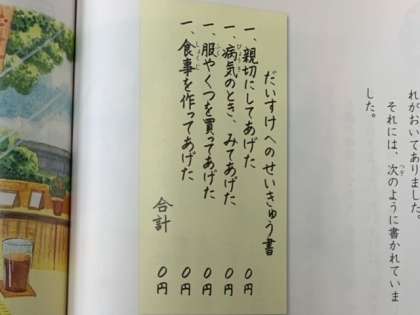 れがおいてありました。
それには、次のように書かれていま
した。
だいすけへのせいきゅう書
一、親切にしてあげた 0円
一、病気のとき、みてあげた 0円
一、服やくつを買ってあげた 0円
一、食事を作ってあげた 0円
合計 0円